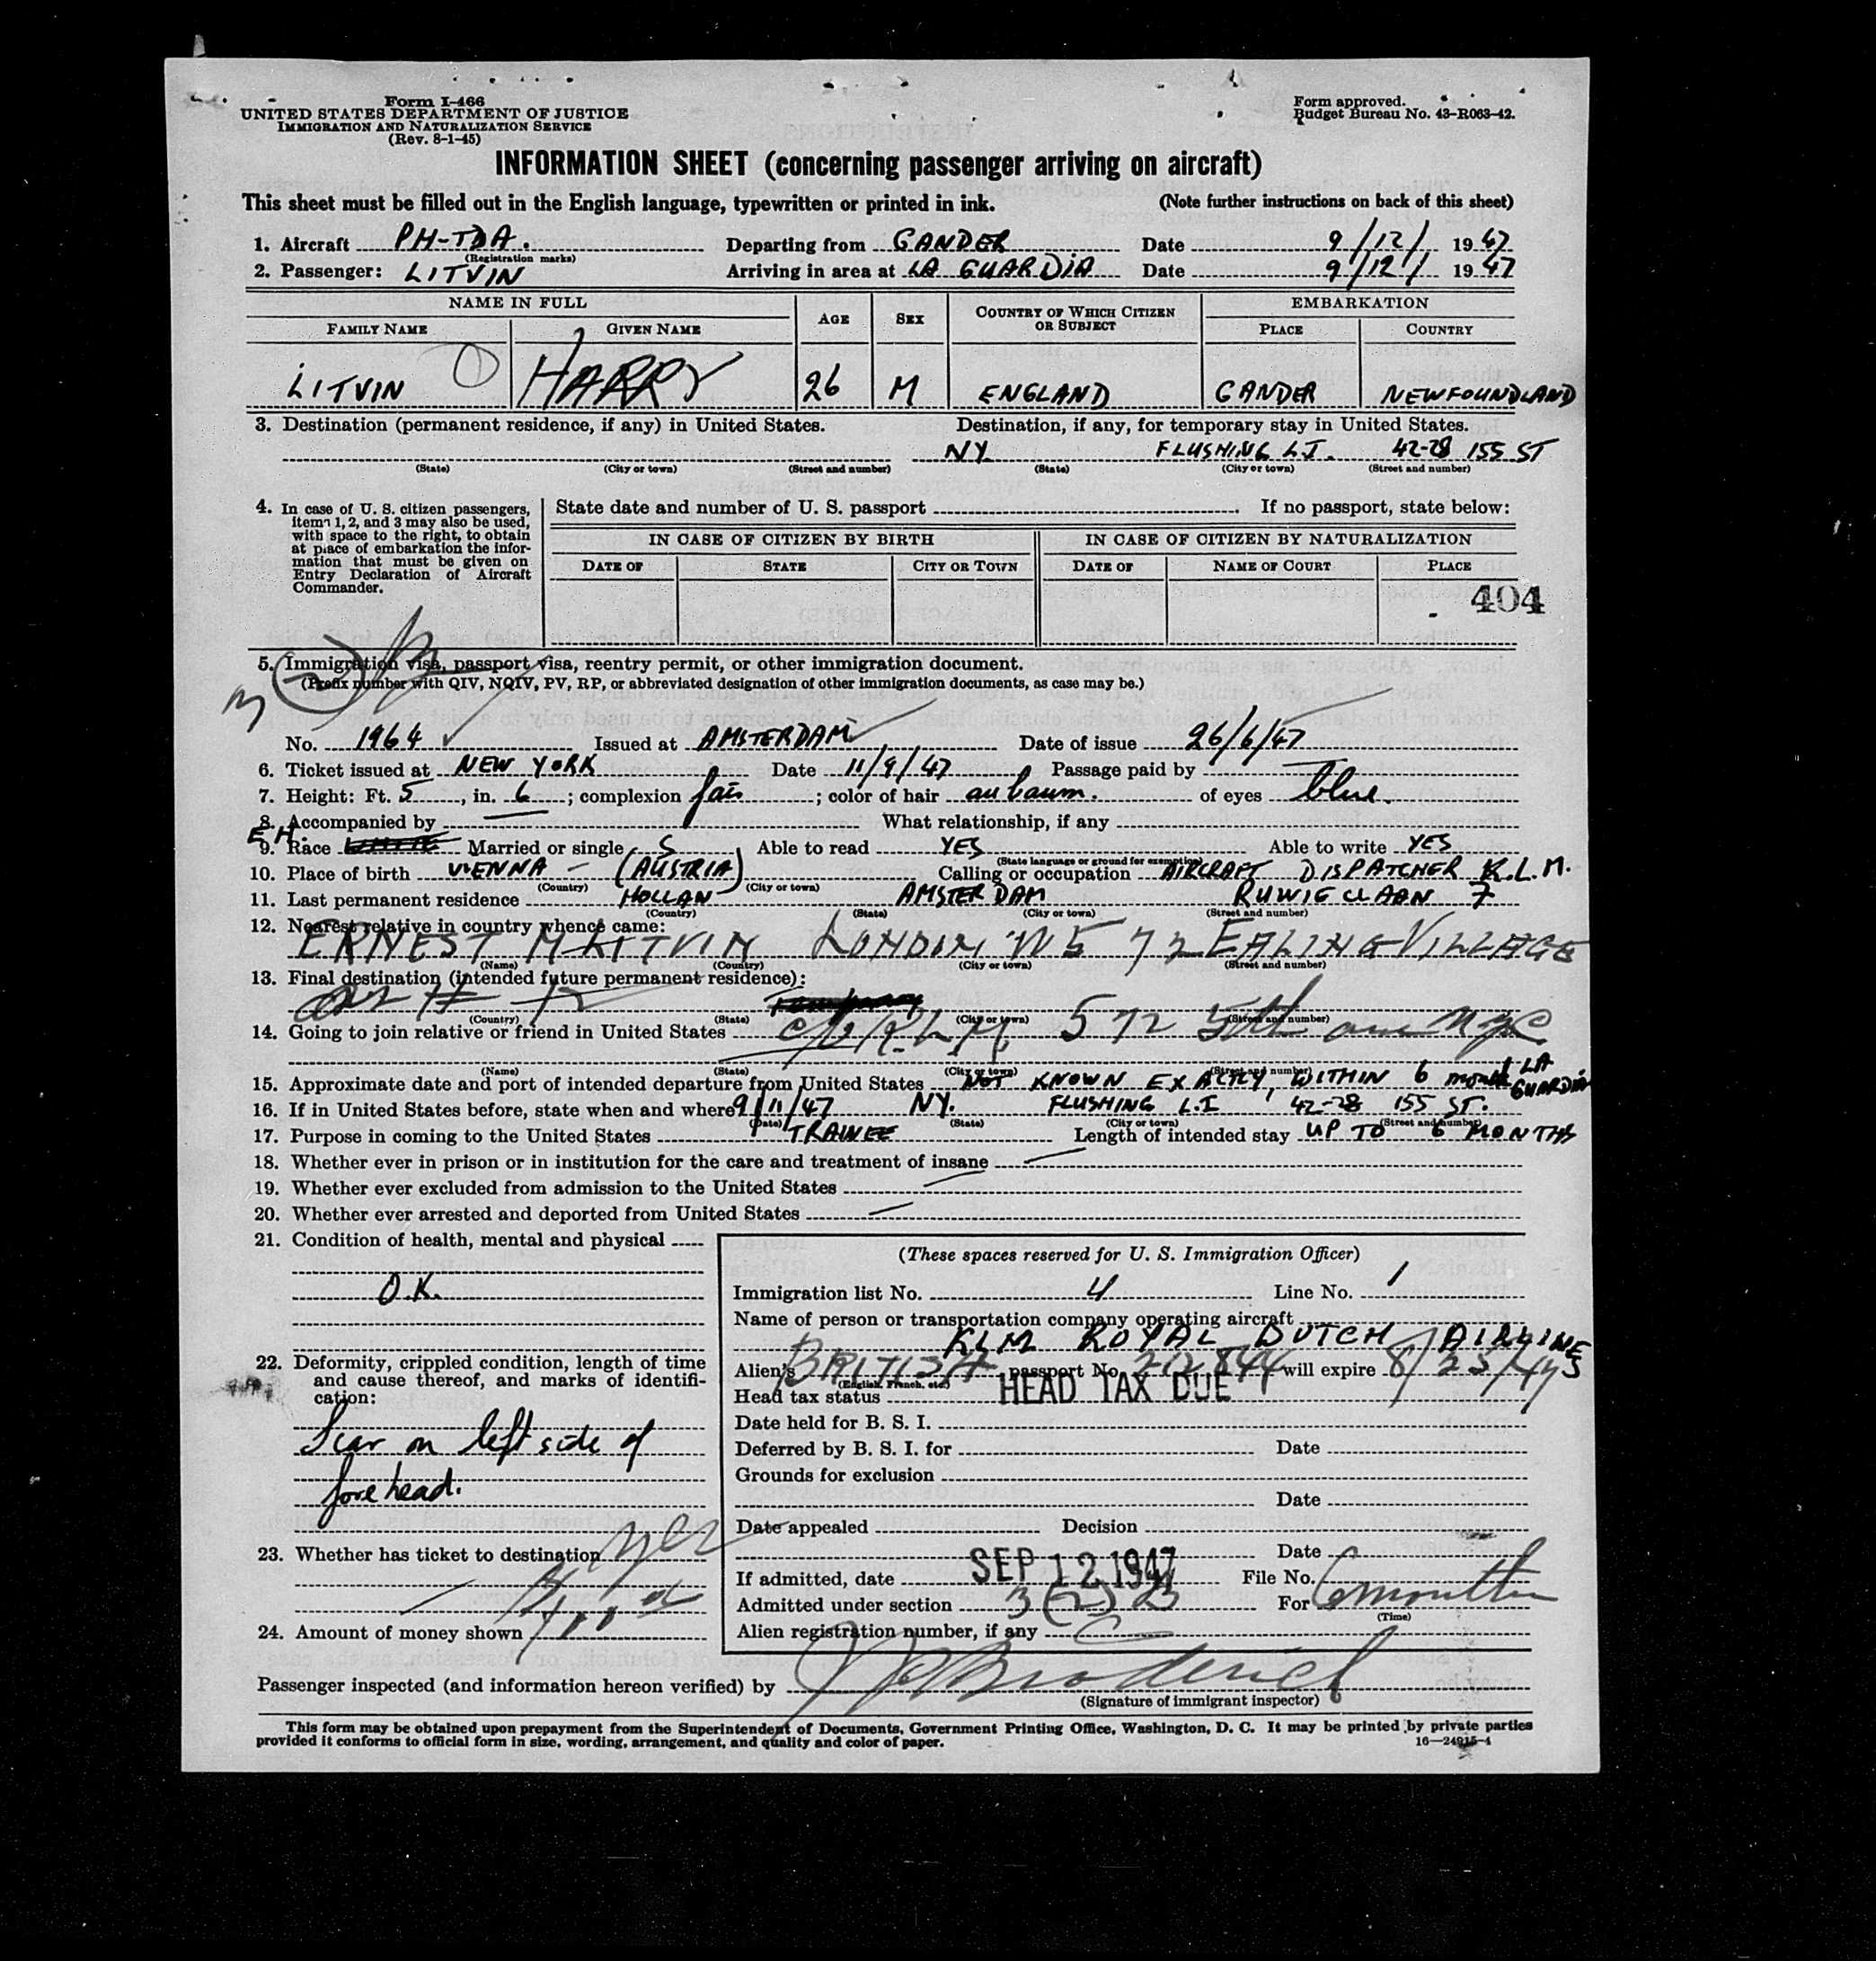 Form I-466
UNITED STATES DEPARTMENT OF JUSTICE
IMMIGRATION AND NATURALIZATION SERVICE
(Rev. 8-1-45)
Form approved.
Budget Bureau No. 43-R063-42.
INFORMATION SHEET (concerning passenger arriving on aircraft)
This sheet must be filled out in the English language, typewritten or printed in ink. (Note further instructions on back of this sheet)
1. Aircraft PH-TDA. Departing from GANDER Date 9/12/ 1947
(Registration marks)
2. Passenger: LITVIN Arriving in area at LA GUARDIA Date 9/12/ 1947
NAME IN FULL AGE SEX COUNTRY OF WHICH CITIZEN OR SUBJECT EMBARKATION
FAMILY NAME GIVEN NAME PLACE COUNTRY
LITVIN HARRY 26 M ENGLAND GANDER NEWFOUNDLAND
3. Destination (permanent residence, if any) in United States. Destination, if any, for temporary stay in United States.
NY FLUSHING L.I. 42-28 155 ST
(State) (City or town) (Street and number) (State) (City or town) (Street and number)
4. In case of U. S. citizen passengers, items 1, 2, and 3 may also be used, with space to the right, to obtain at place of embarkation the information that must be given on Entry Declaration of Aircraft Commander.
State date and number of U. S. passport If no passport, state below:
IN CASE OF CITIZEN BY BIRTH IN CASE OF CITIZEN BY NATURALIZATION
DATE OF STATE CITY OR TOWN DATE OF NAME OF COURT PLACE
404
5. Immigration visa, passport visa, reentry permit, or other immigration document.
(Prefix number with QIV, NQIV, PV, RP, or abbreviated designation of other immigration documents, as case may be.)
No. 1964 Issued at AMSTERDAM Date of issue 26/6/47
6. Ticket issued at NEW YORK Date 11/9/47 Passage paid by
7. Height: Ft. 5, in. 6; complexion fair; color of hair aubaum. of eyes blue.
8. Accompanied by What relationship, if any
E.H.
9. Race Married or single S Able to read YES Able to write YES
(State language or ground for exemption)
10. Place of birth VIENNA - (AUSTRIA) Calling or occupation AIRCRAFT DISPATCHER K.L.M.
(Country) (City or town)
11. Last permanent residence HOLLAN AMSTERDAM RUWIGCLAAN 7
(Country) (State) (City or town) (Street and number)
12. Nearest relative in country whence came:
ERNEST M LITVIN LONDON W5 72 EALING VILLAGE
(Name) (Country) (City or town) (Street and number)
13. Final destination (intended future permanent residence):
(Country) (State) (City or town) (Street and number)
14. Going to join relative or friend in United States c/o KLM 572 5th ave NYC
(Name) (State) (City or town) (Street and number)
15. Approximate date and port of intended departure from United States NOT KNOWN EXACTLY, WITHIN 6 months LA GUARDIA
16. If in United States before, state when and where 9/11/47 NY. FLUSHING L.I 42-28 155 ST.
(Date) (State) (City or town) (Street and number)
17. Purpose in coming to the United States TRAINEE Length of intended stay UP TO 6 MONTHS
18. Whether ever in prison or in institution for the care and treatment of insane
19. Whether ever excluded from admission to the United States
20. Whether ever arrested and deported from United States
21. Condition of health, mental and physical
O.K.
22. Deformity, crippled condition, length of time and cause thereof, and marks of identification:
Scar on left side of
forehead.
23. Whether has ticket to destination yes
24. Amount of money shown
(These spaces reserved for U. S. Immigration Officer)
Immigration list No. 4 Line No. 1
Name of person or transportation company operating aircraft
KLM ROYAL DUTCH AIRLINES
Alien's BRITISH passport No. 212844 will expire 8/25/49
(English, French, etc.)
Head tax status HEAD TAX DUE
Date held for B. S. I.
Deferred by B. S. I. for Date
Grounds for exclusion
Date
Date appealed Decision
Date
If admitted, date SEP 12 1947 File No.
Admitted under section 3(2) 23 For 6 months
(Time)
Alien registration number, if any
Passenger inspected (and information hereon verified) by Broderick
(Signature of immigrant inspector)
This form may be obtained upon prepayment from the Superintendent of Documents, Government Printing Office, Washington, D. C. It may be printed by private parties
provided it conforms to official form in size, wording, arrangement, and quality and color of paper. 16—24915-4